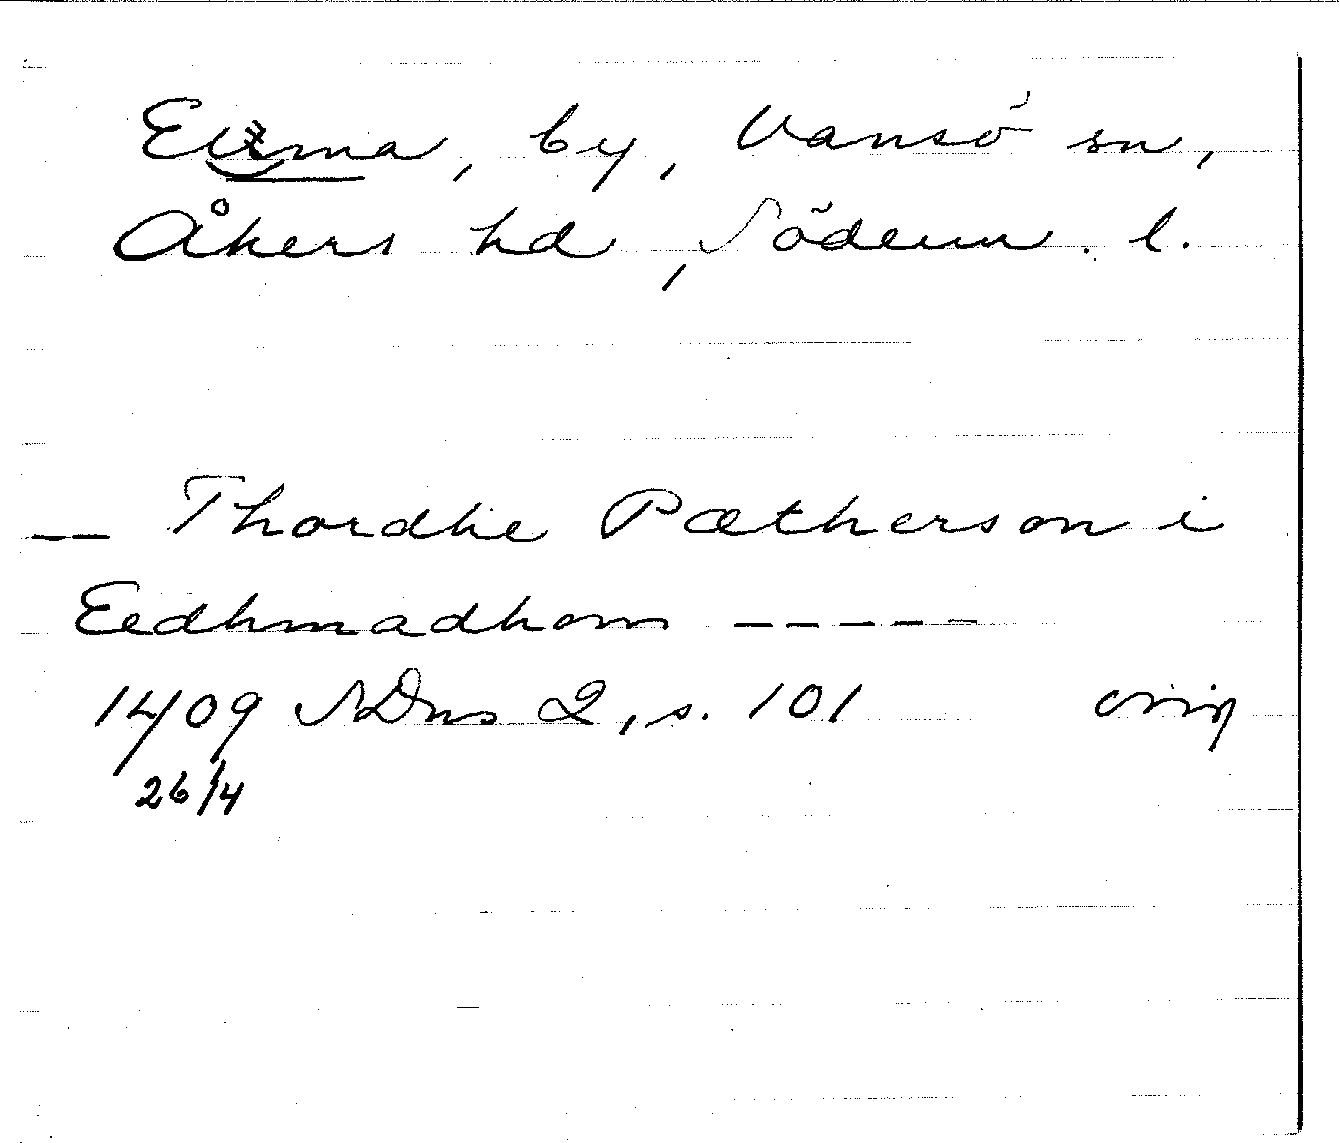 Eksma, by, Vansö sn,
Åkers hd, Söderm. l.
— Thordhe Pætherson i
Eedhmadhom -----
1409 SDns 2, s. 101 orig
26/4